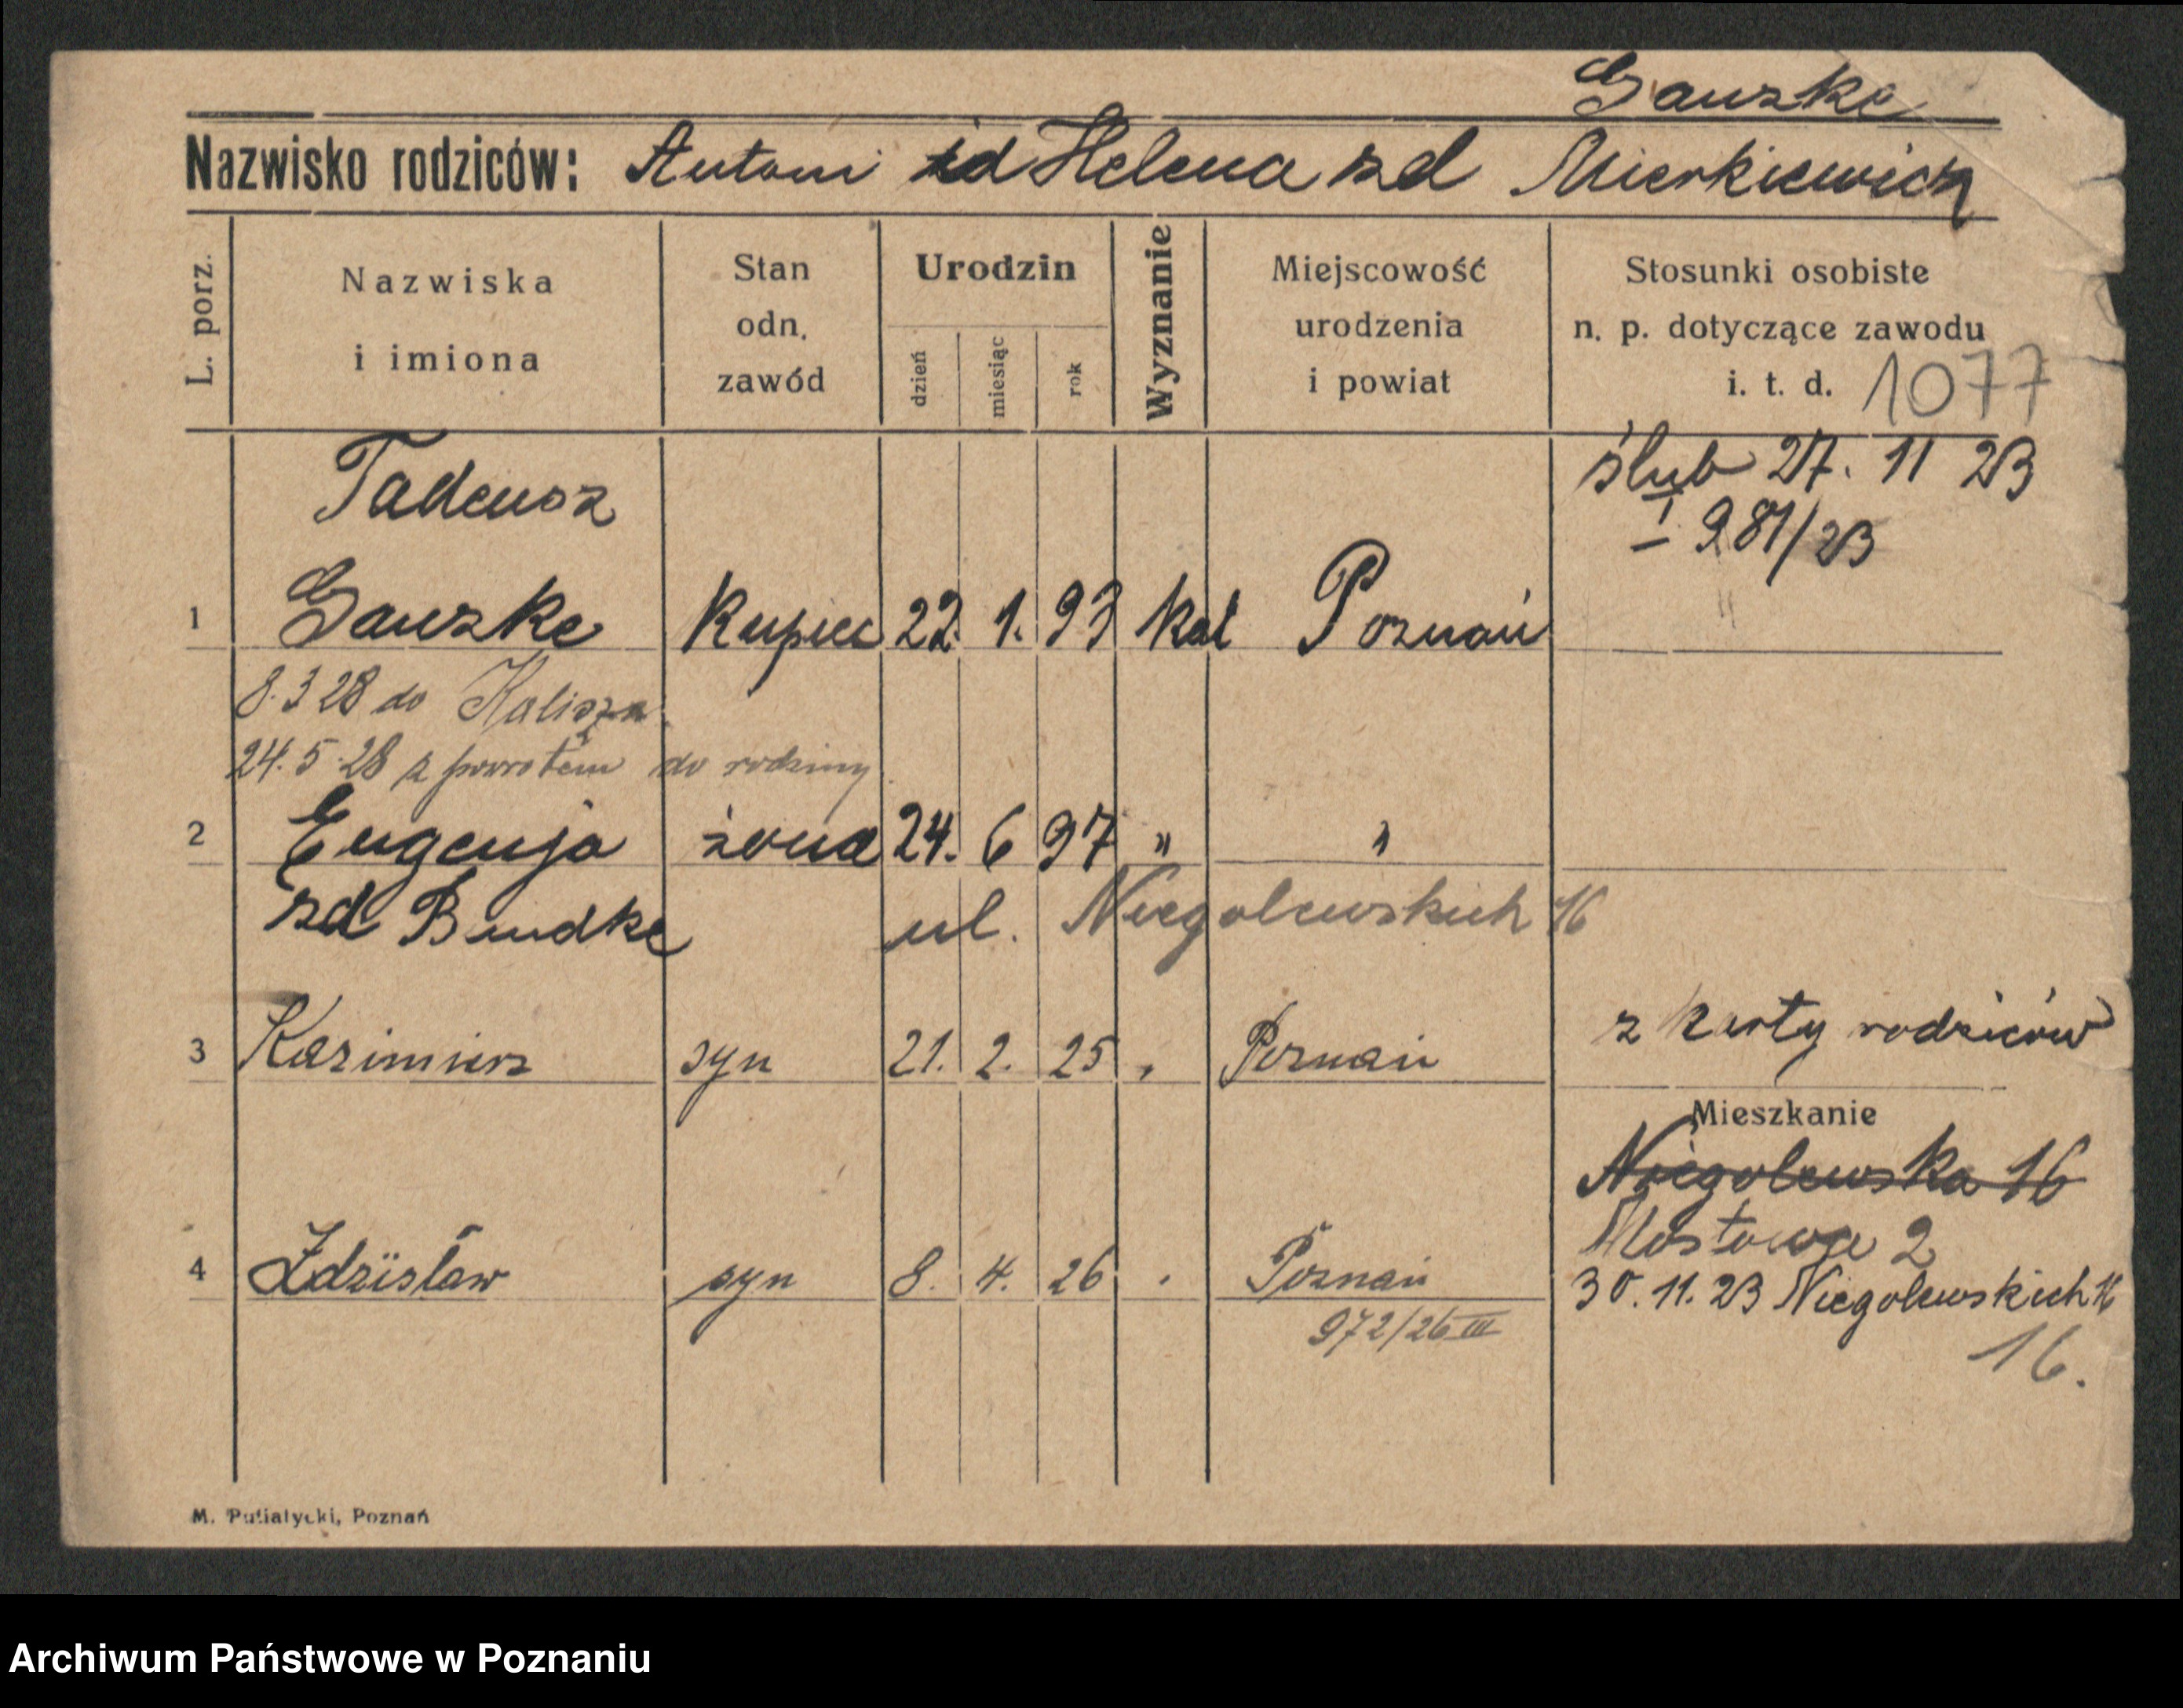 Gauzke
Nazwisko rodziców: Antoni i Helena zd Mierkiewicz
L. porz.
Nazwiska
i imiona
Stan
odn.
zawód
Urodzin
dzień
miesiąc
rok
Wyznanie
Miejscowość
urodzenia
i powiat
Stosunki osobiste
n. p. dotyczące zawodu
i. t. d. 1077
ślub 27. 11 23
I 981/23
Tadeusz
1 Gauzke Kupiec 22. 1. 93 kat Poznań
8.3 28 do Kalisza
24.5.28 z powrotem do rodziny
2 Eugenja żona 24. 6 97 " "
zd Bendke ul. Niegolewskich 16
z karty rodziców
3 Kazimierz syn 21. 2. 25 " Poznań
Mieszkanie
Niegolewska 16
Mostowa 2
4 Zdzisław syn 8. 4. 26 " Poznań
30. 11. 23 Niegolewskich 16
972/26 III
16.
M. Putiatycki, Poznań
Archiwum Państwowe w Poznaniu